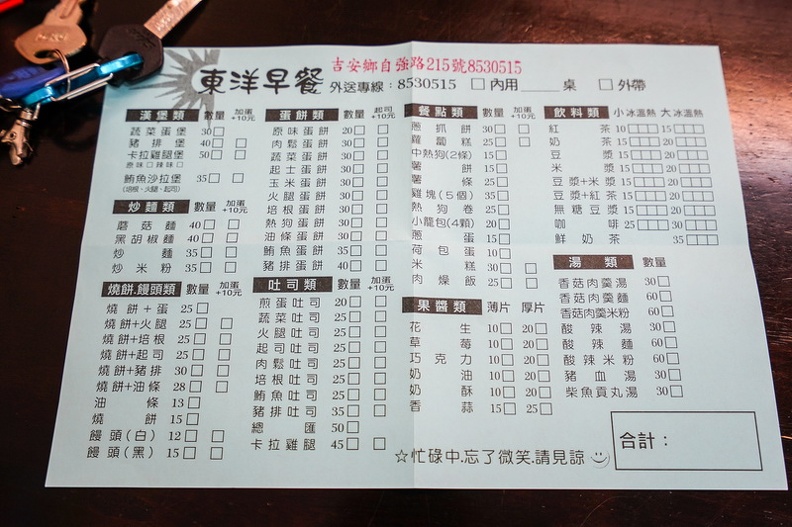 吉安鄉自強路215號8530515
東洋早餐 外送專線：8530515 □內用____桌 □外帶
漢堡類 數量 加蛋+10元
蔬菜蛋堡 30
豬排堡 40
卡拉雞腿堡 50
原味□辣味□
鮪魚沙拉堡 35
(培根、火腿、起司)
炒麵類 數量 加蛋+10元
蘑菇麵 40
黑胡椒麵 40
炒麵 35
炒米粉 35
燒餅.饅頭類 數量 加蛋+10元
燒餅+蛋 25
燒餅+火腿 25
燒餅+培根 25
燒餅+起司 25
燒餅+豬排 30
燒餅+油條 28
油條 13
燒餅 15
饅頭(白) 12
饅頭(黑) 15
蛋餅類 數量 起司+10元
原味蛋餅 20
肉鬆蛋餅 30
蔬菜蛋餅 30
起士蛋餅 30
玉米蛋餅 30
火腿蛋餅 30
培根蛋餅 30
熱狗蛋餅 30
油條蛋餅 30
鮪魚蛋餅 35
豬排蛋餅 40
吐司類 數量 加蛋+10元
煎蛋吐司 20
蔬菜吐司 25
火腿吐司 25
起司吐司 25
肉鬆吐司 25
培根吐司 25
鮪魚吐司 25
豬排吐司 35
總匯 50
卡拉雞腿 45
餐點類 數量 加蛋+10元
蔥抓餅 30
蘿蔔糕 25
中熱狗(2條) 15
薯餅 15
薯條 25
雞塊(5個) 35
熱狗卷 25
小籠包(4顆) 20
蔥蛋 15
荷包蛋 10
米糕 30
肉燥飯 25
果醬類 薄片 厚片
花生 10 20
草莓 10 20
巧克力 10 20
奶油 10 20
奶酥 10 20
香蒜 15 25
飲料類 小冰溫熱 大冰溫熱
紅茶 10 15
豆漿 15 20
米漿 15 20
豆漿+米漿 15 20
豆漿+紅茶 15 20
無糖豆漿 15 20
咖啡 25 30
鮮奶茶 35
湯類 數量
香菇肉羹湯 30
香菇肉羹麵 60
香菇肉羹米粉 60
酸辣湯 30
酸辣麵 60
酸辣米粉 60
豬血湯 30
柴魚貢丸湯 30
合計：
☆忙碌中.忘了微笑.請見諒